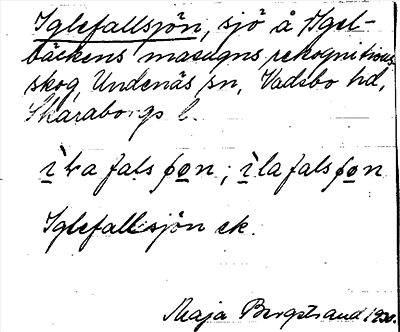 Iglefallsjön, sjö å Igel-
bäckens masugns rekognitions
skog, Undenäs sn, Vadsbo hd,
Skaraborgs l.
falsʃon; ìlafalsʃon
Iglefallsjön ek.
Maja Bergstrand 1930.